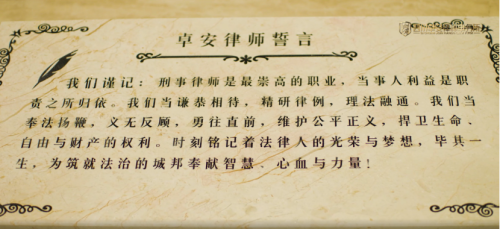 卓安律师誓言
我们谨记：刑事律师是最崇高的职业，当事人利益是职
责之所归依。我们当谦恭相待，精研律例，理法融通。我们当
奉法扬鞭，义无反顾，勇往直前，维护公平正义，捍卫生命、
自由与财产的权利。时刻铭记着法律人的光荣与梦想，毕其一
生，为筑就法治的城邦奉献智慧、心血与力量！